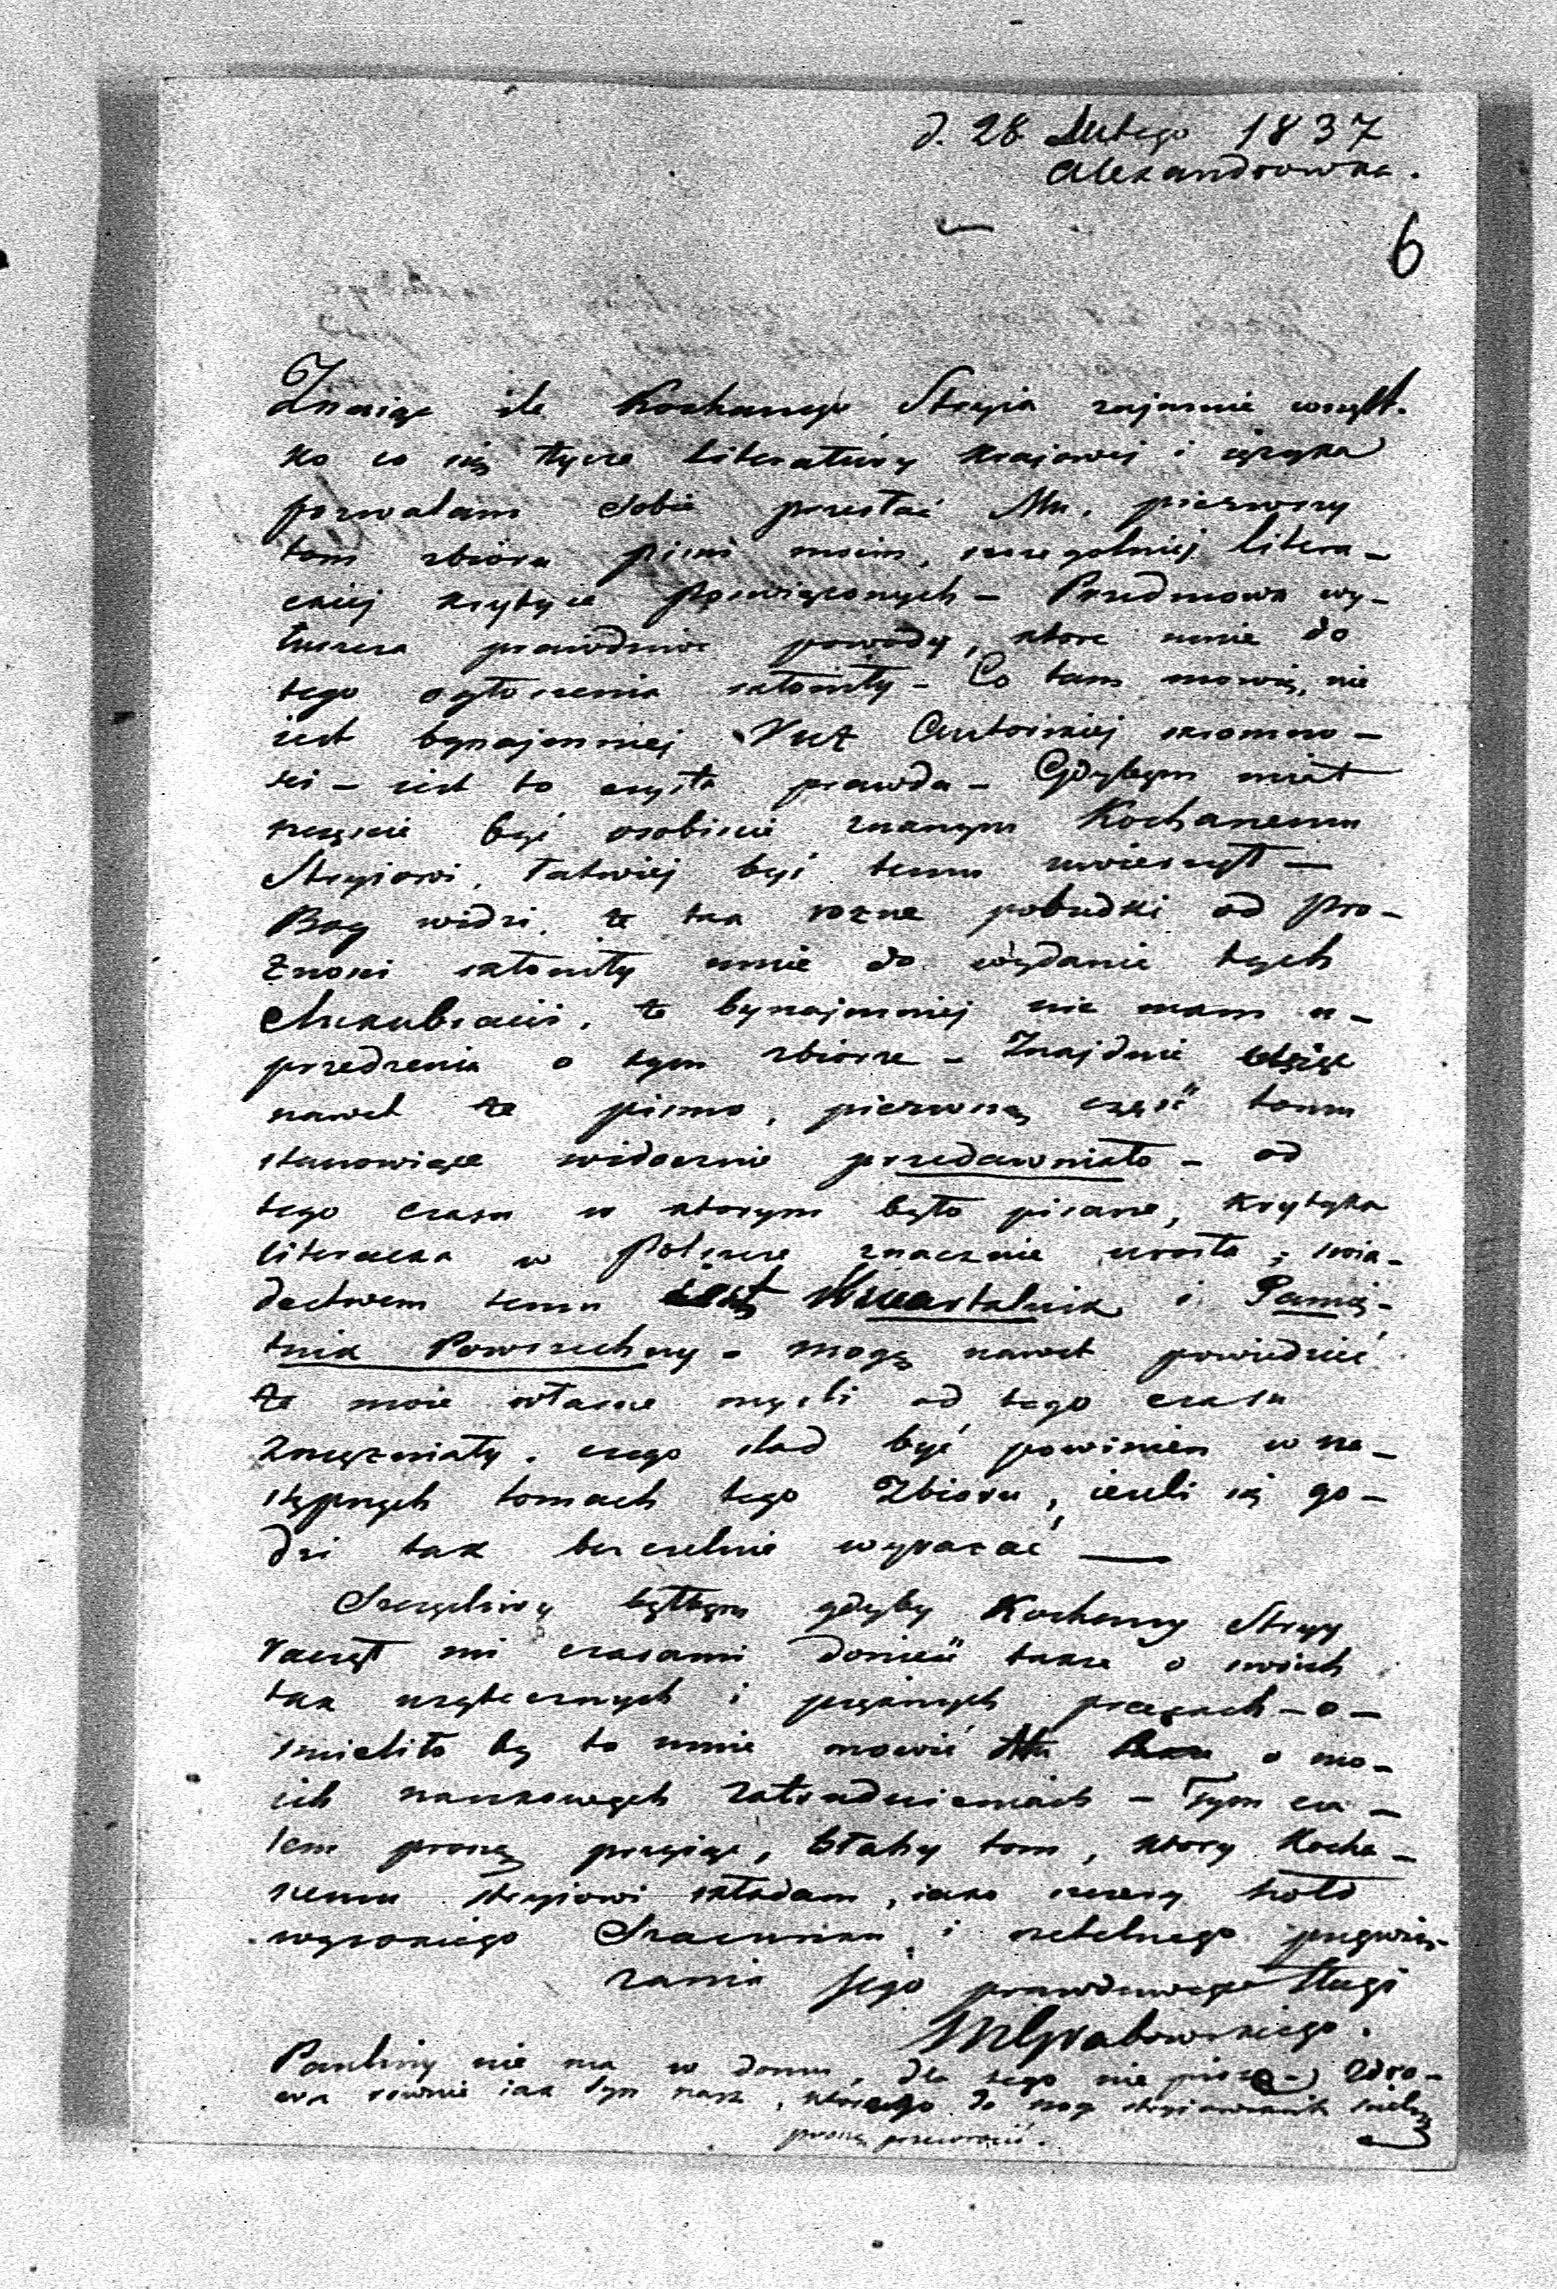 d. 28 Lutego 1837
Alexandrowka.
6
Znaiąc ile Kochanego Stryia zajmuie wszyst-
ko co się tycze Literatury krajowej i ięzyka
pozwalam sobie przesłać Mu, pierwszy
tom zbioru pism moim, szczegolniej litera-
ckiej krytyce poswięconych – Przedmowa wy-
łuszcza prawdziwe powody, ktore mnie do
tego ogłoszenia skłoniły – Co tam mowię, nie
iest bynajmniej Autorskiej skromno-
sci – iest to czysta prawda – Gdybym miał
szczęscie być osobiscie znanym Kochanemu
Stryiowi, łatwiej byś temu uwierzył –
Bog widzi, że tak rożne pobudki od pro-
żnosci skłoniły mnie do wydania tych
Lukubracii, że bynajmniej nie mam u-
przedzenia o tym zbiorze – Znajduię
nawet że pismo, pierwszą część tomu
stanowiące widocznie przedawniało – od
tego czasu w ktorym było pisane, krytyka
literacka w Polszcze znacznie urosła, swia-
dectwem temu są Kwartalnik i Pamię-
tnik Powszechny – mogę nawet powiedzieć
że moie własne mysli od tego czasu
zmężniały, czego slad być powinien w na-
stępnych tomach tego Zbioru, ieżeli się go-
dzi tak bezczelnie wyrażać —
Szczęsliwy byłbym gdyby Kochany Stryy
raczył mi czasami donieść także o swoich
tak użytecznych i pięknych pracach – o-
smieliło by to mnie mowić Mu o mo-
ich naukowych zatrudnieniach – Tym cza-
sem proszę przyiąć, błahy tom, ktory Kocha-
nemu Stryiowi składam, iako szczery hołd
wysokiego Szacunku i rzetelnego przywią-
zania Jego prawdziwego sługi
MGrabowskiego.
Pauliny nie ma w domu, dla tego nie pisze – Zdro-
wa rownie iak syn nasz, ktorego do nog stryiowskich
proszę przewrocić.